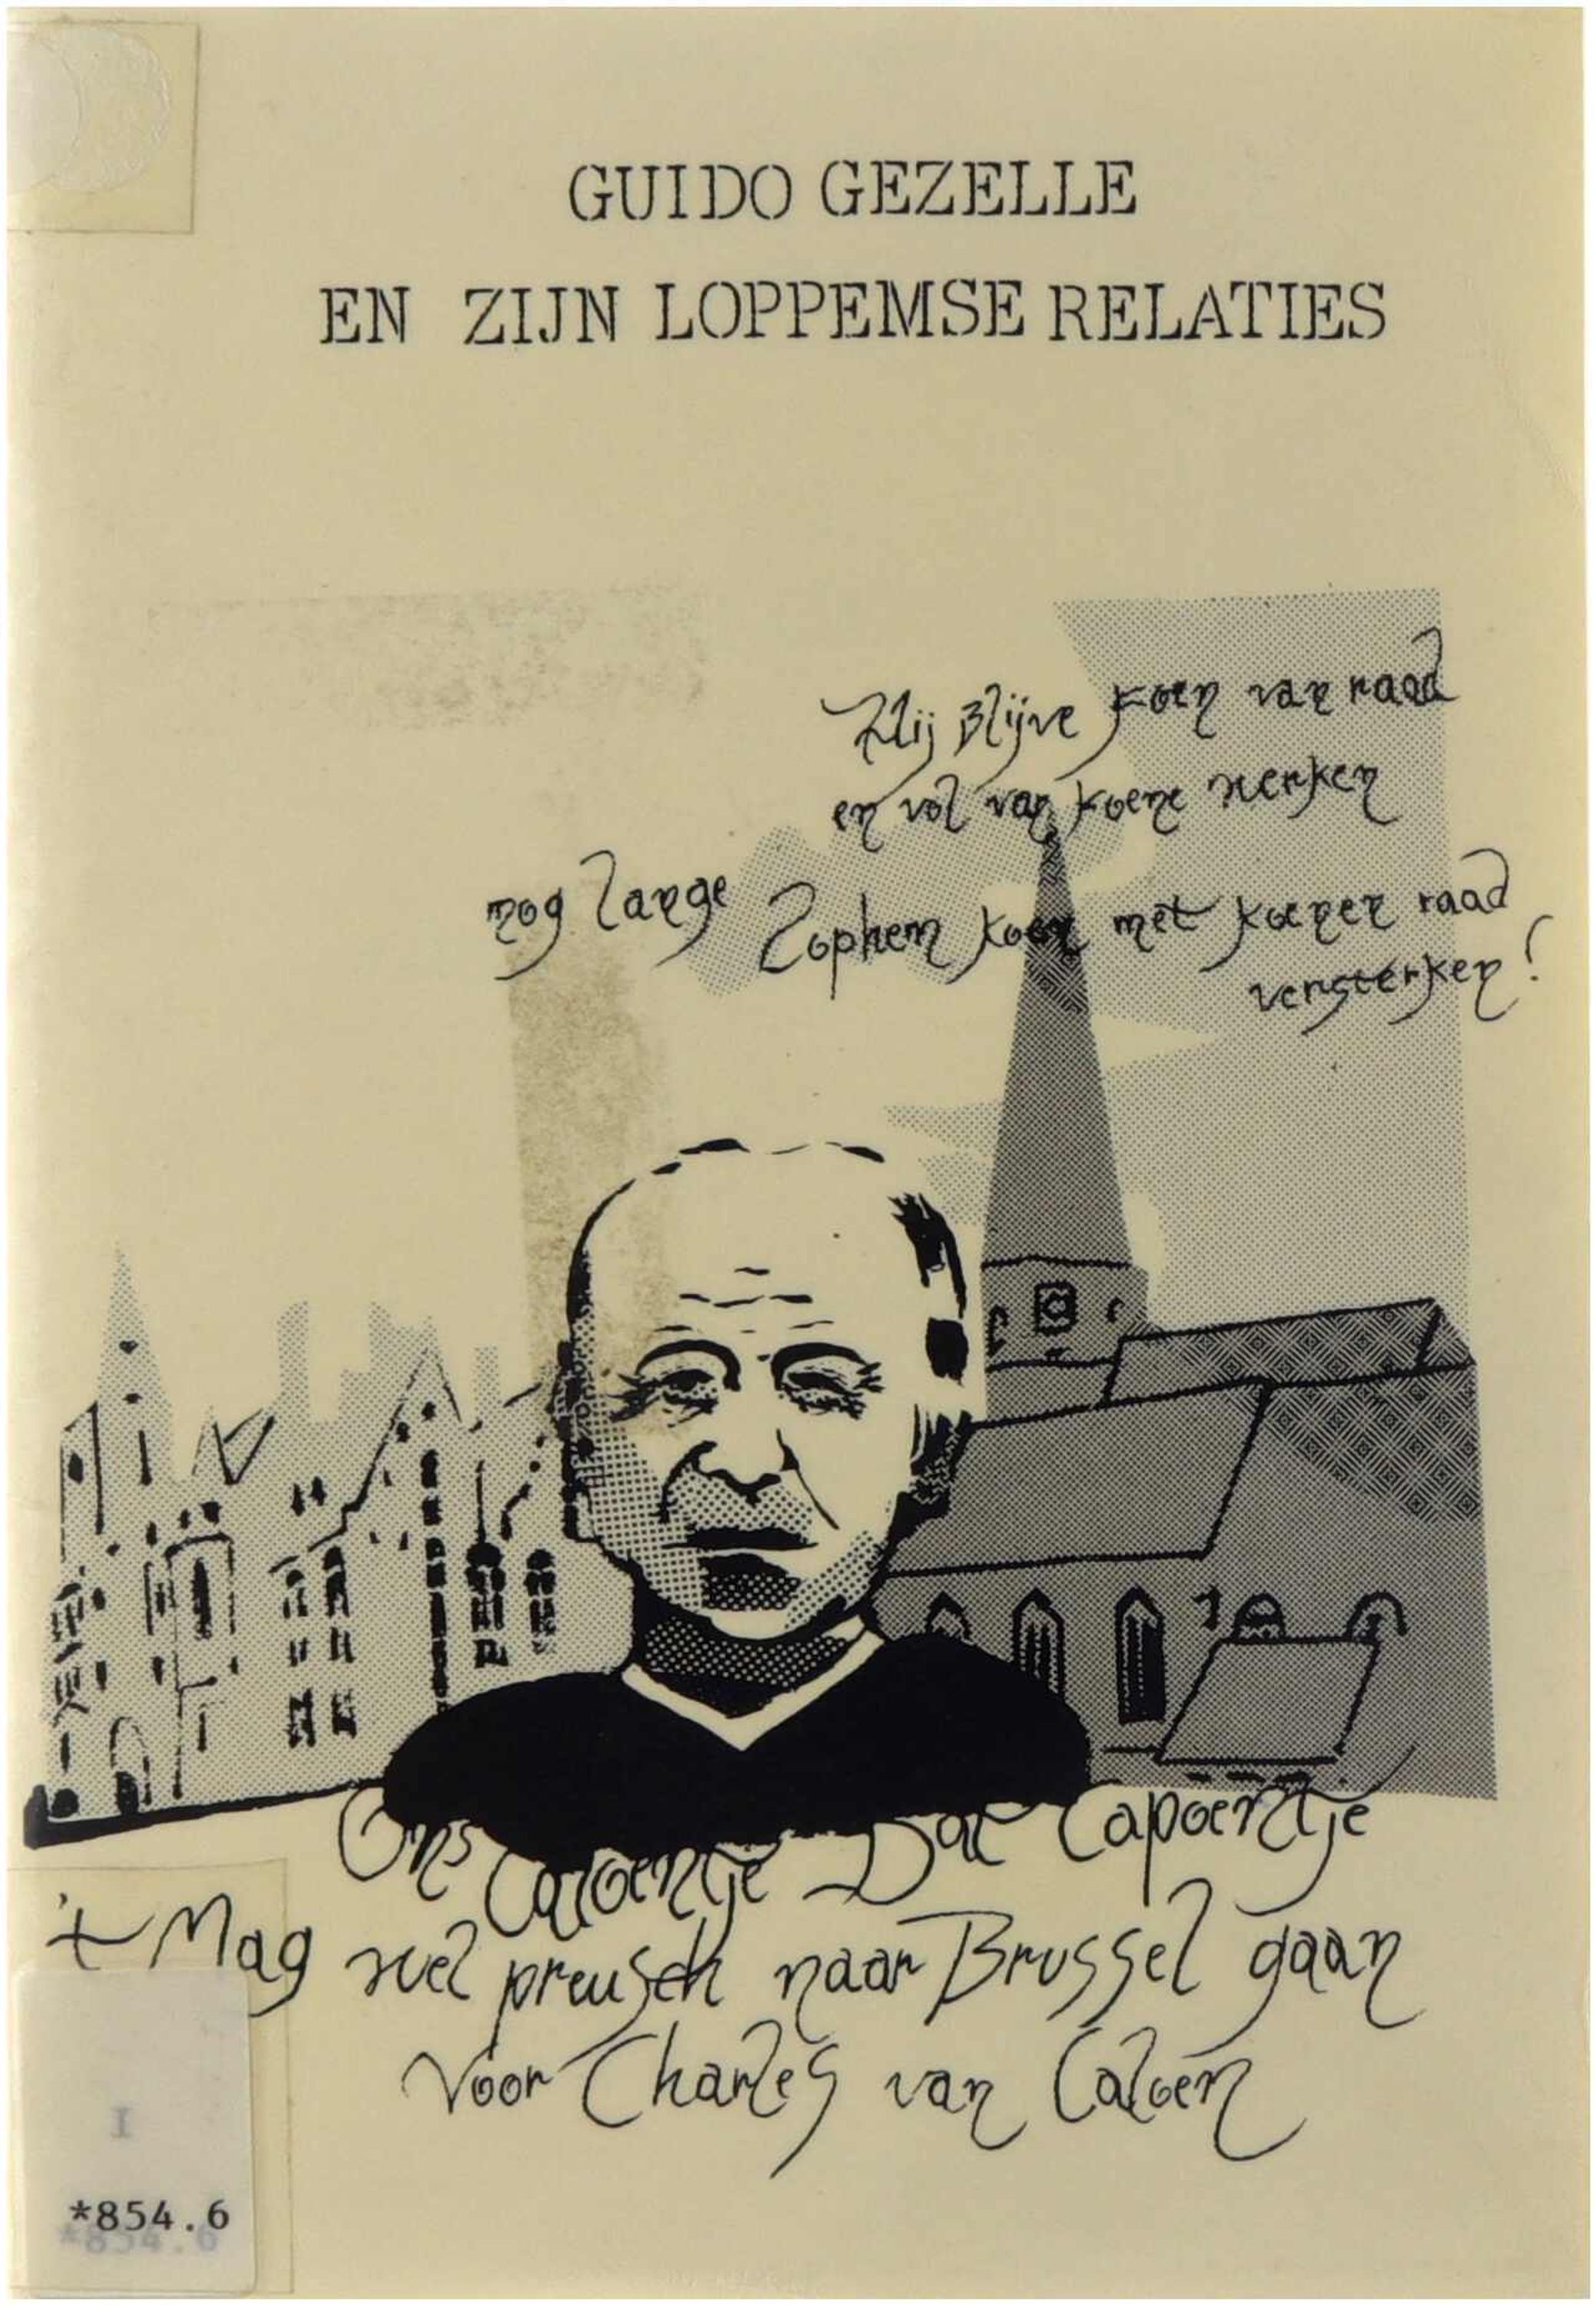 GUIDO GEZELLE
EN ZIJN LOPPEMSE RELATIES
Hij Blijve koen van raad
en vol van koene werken
nog lange Lophem koen met koenen raad
versterken!
Ons Caloentje Dat Capoentje
't Mag wel preusch naar Brussel gaan
Voor Charles van Caloen
I
*854.6